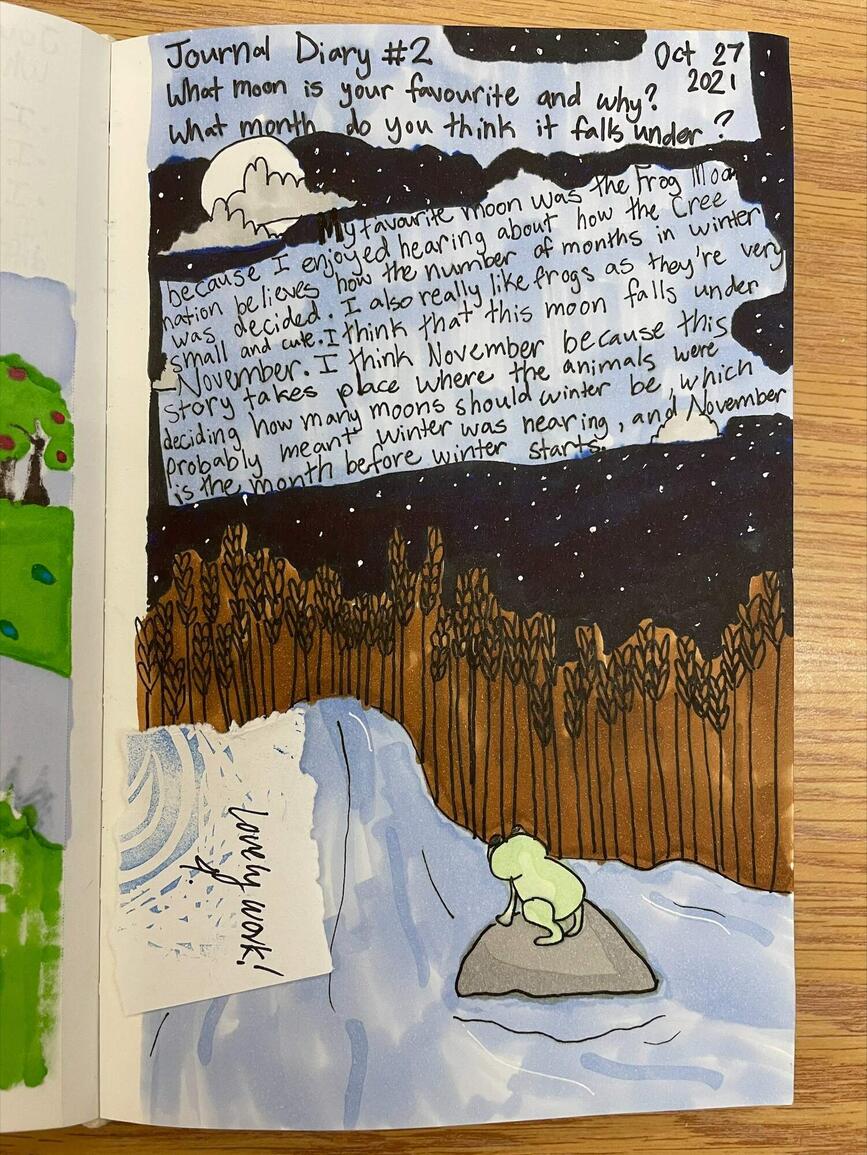 Journal Diary #2
Oct 27
2021
What moon is your favourite and why?
What month do you think it falls under?
My favourite moon was the Frog Moon
because I enjoyed hearing about how the Cree
nation believes how the number of months in winter
was decided. I also really like frogs as they're very
small and cute. I think that this moon falls under
November. I think November because this
story takes place where the animals were
deciding how many moons should winter be, which
probably meant winter was nearing, and November
is the month before winter starts.
Lovely work!